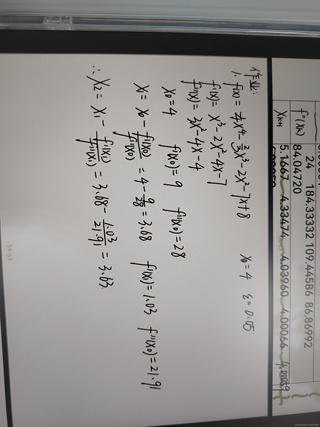 24 184.33332 109.44586 86.86992
f''(xₖ) 84.04720
xₖ₊₁ 5.1667 4.33474 4.03960 4.00066
作业:
1. f(x) = ¼x⁴ - ⅔x³ - 2x² - 7x + 8 x₀ = 4 ε = 0.05
f'(x) = x³ - 2x² - 4x - 7
f''(x) = 3x² - 4x - 4
x₀ = 4 f'(x₀) = 9 f''(x₀) = 28
x₁ = x₀ - f'(x₀)/f''(x₀) = 4 - 9/28 = 3.68 f'(x₁) = 1.03 f''(x₁) = 21.91
∴ x₂ = x₁ - f'(x₁)/f''(x₁) = 3.68 - 1.03/21.91 = 3.63